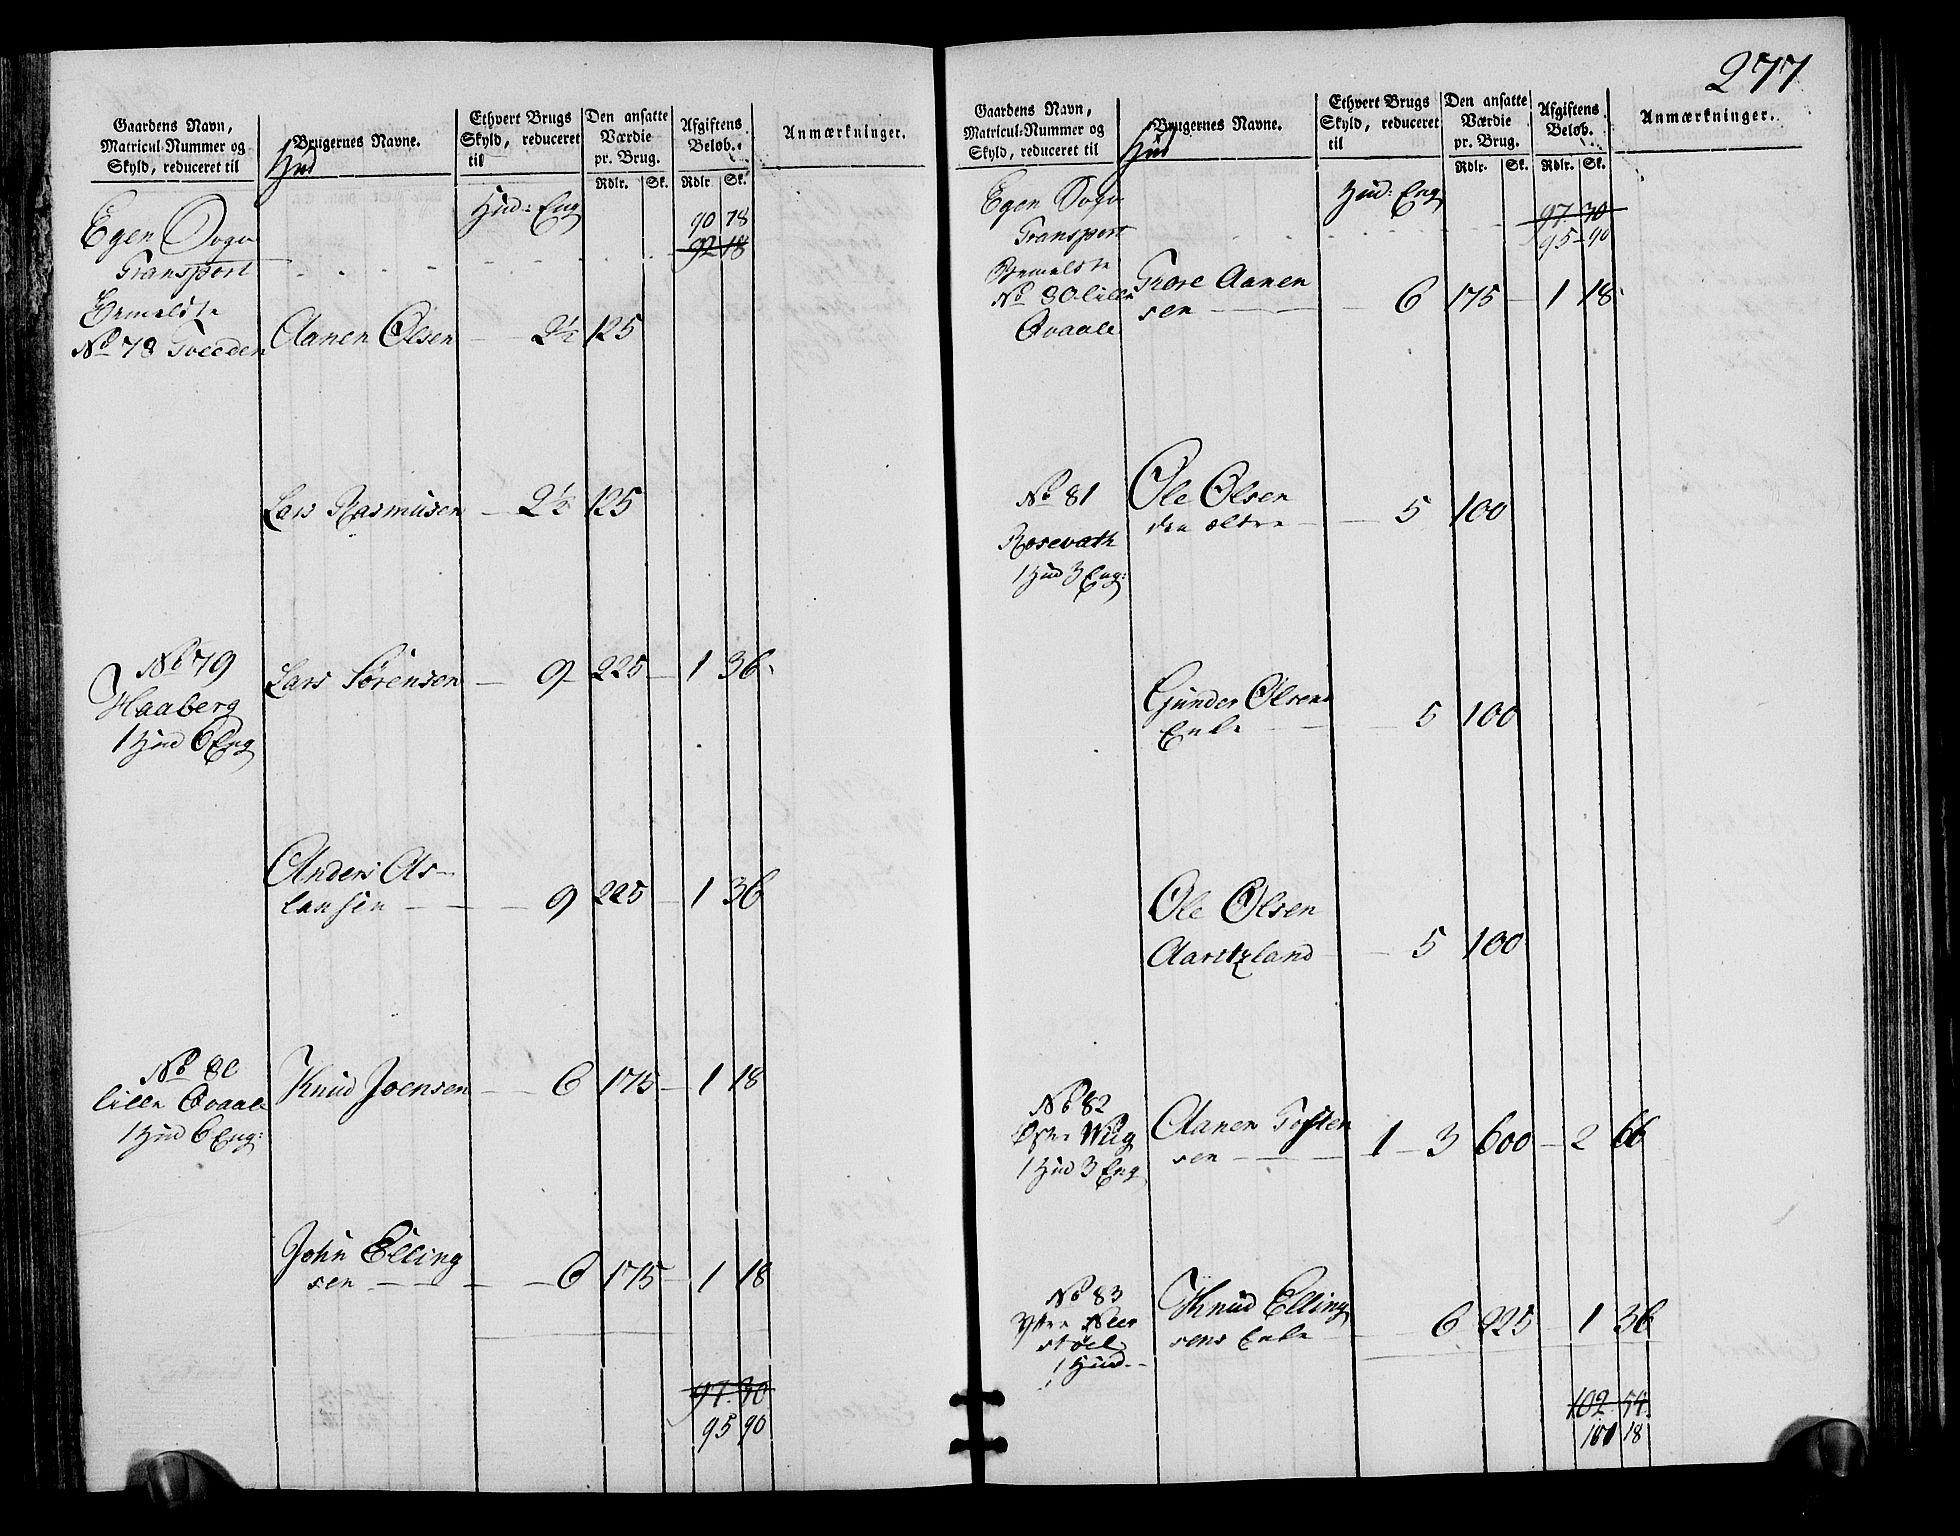 Gaardens Navn,
Matricul-Nummer og
Skyld, reduceret til
Hud
Brugernes Navne.
Ethvert Brugs
Skyld, reduceret
til
Den ansatte
Værdie
pr. Brug.
Rdlr. Sk.
Afgiftens
Beløb.
Rdlr Sk.
Anmærkninger.
Hud: Eng
Egen Sogn
90 78
92 18
Transport
No 78 Tveeden Aanen Olsen 2½ 125
Lars Rasmusen 2½ 125
No 79
Haaberg
1 Hud 6 Eng
Lars Sørensen 9 225 1 36
Anders As-
lansen 9 225 1 36
No 80
lille Qvaale
1 Hud 6 Eng:
Knud Joensen 6 175 1 18
John Elling
sen 6 175 1 18
97 30
95 90
277
Gaardens Navn,
Matricul-Nummer og
Skyld, reduceret til
Hud
Brugernes Navne.
Ethvert Brugs
Skyld, reduceret
til
Den ansatte
Værdie
pr. Brug.
Rdlr. Sk.
Afgiftens
Beløb.
Rdlr. Sk.
Anmærkninger.
Hud: Eng
Egen Sogn
97 30
Transport 95 90
No 80 lille
Qvaale
Tore Aanen
sen 6 175 1 18
No 81
Rosevath
1 Hud 3 Eng:
Ole Olsen
den ældre 5 100
Gunder Olsens
Enke 5 100
Ole Olsen
Aaritzland 5 100
No 82
1 Hud 3 Eng
Aanen Tosten
sen 1 3 600 2 66
No 83
støel
1 Hud
Knud Elling
sens Enke 6 225 1 36
102 54
101 18